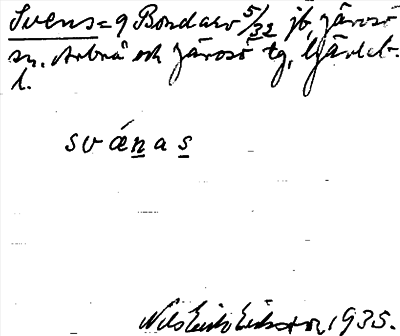 Svens = 9 Bondarv 5/32 jb, Järvsö
sn. Arbrå och Järvsö tg, Gävleb.
l.
sváṉas̱
Nils Erik Eriksson 1935.